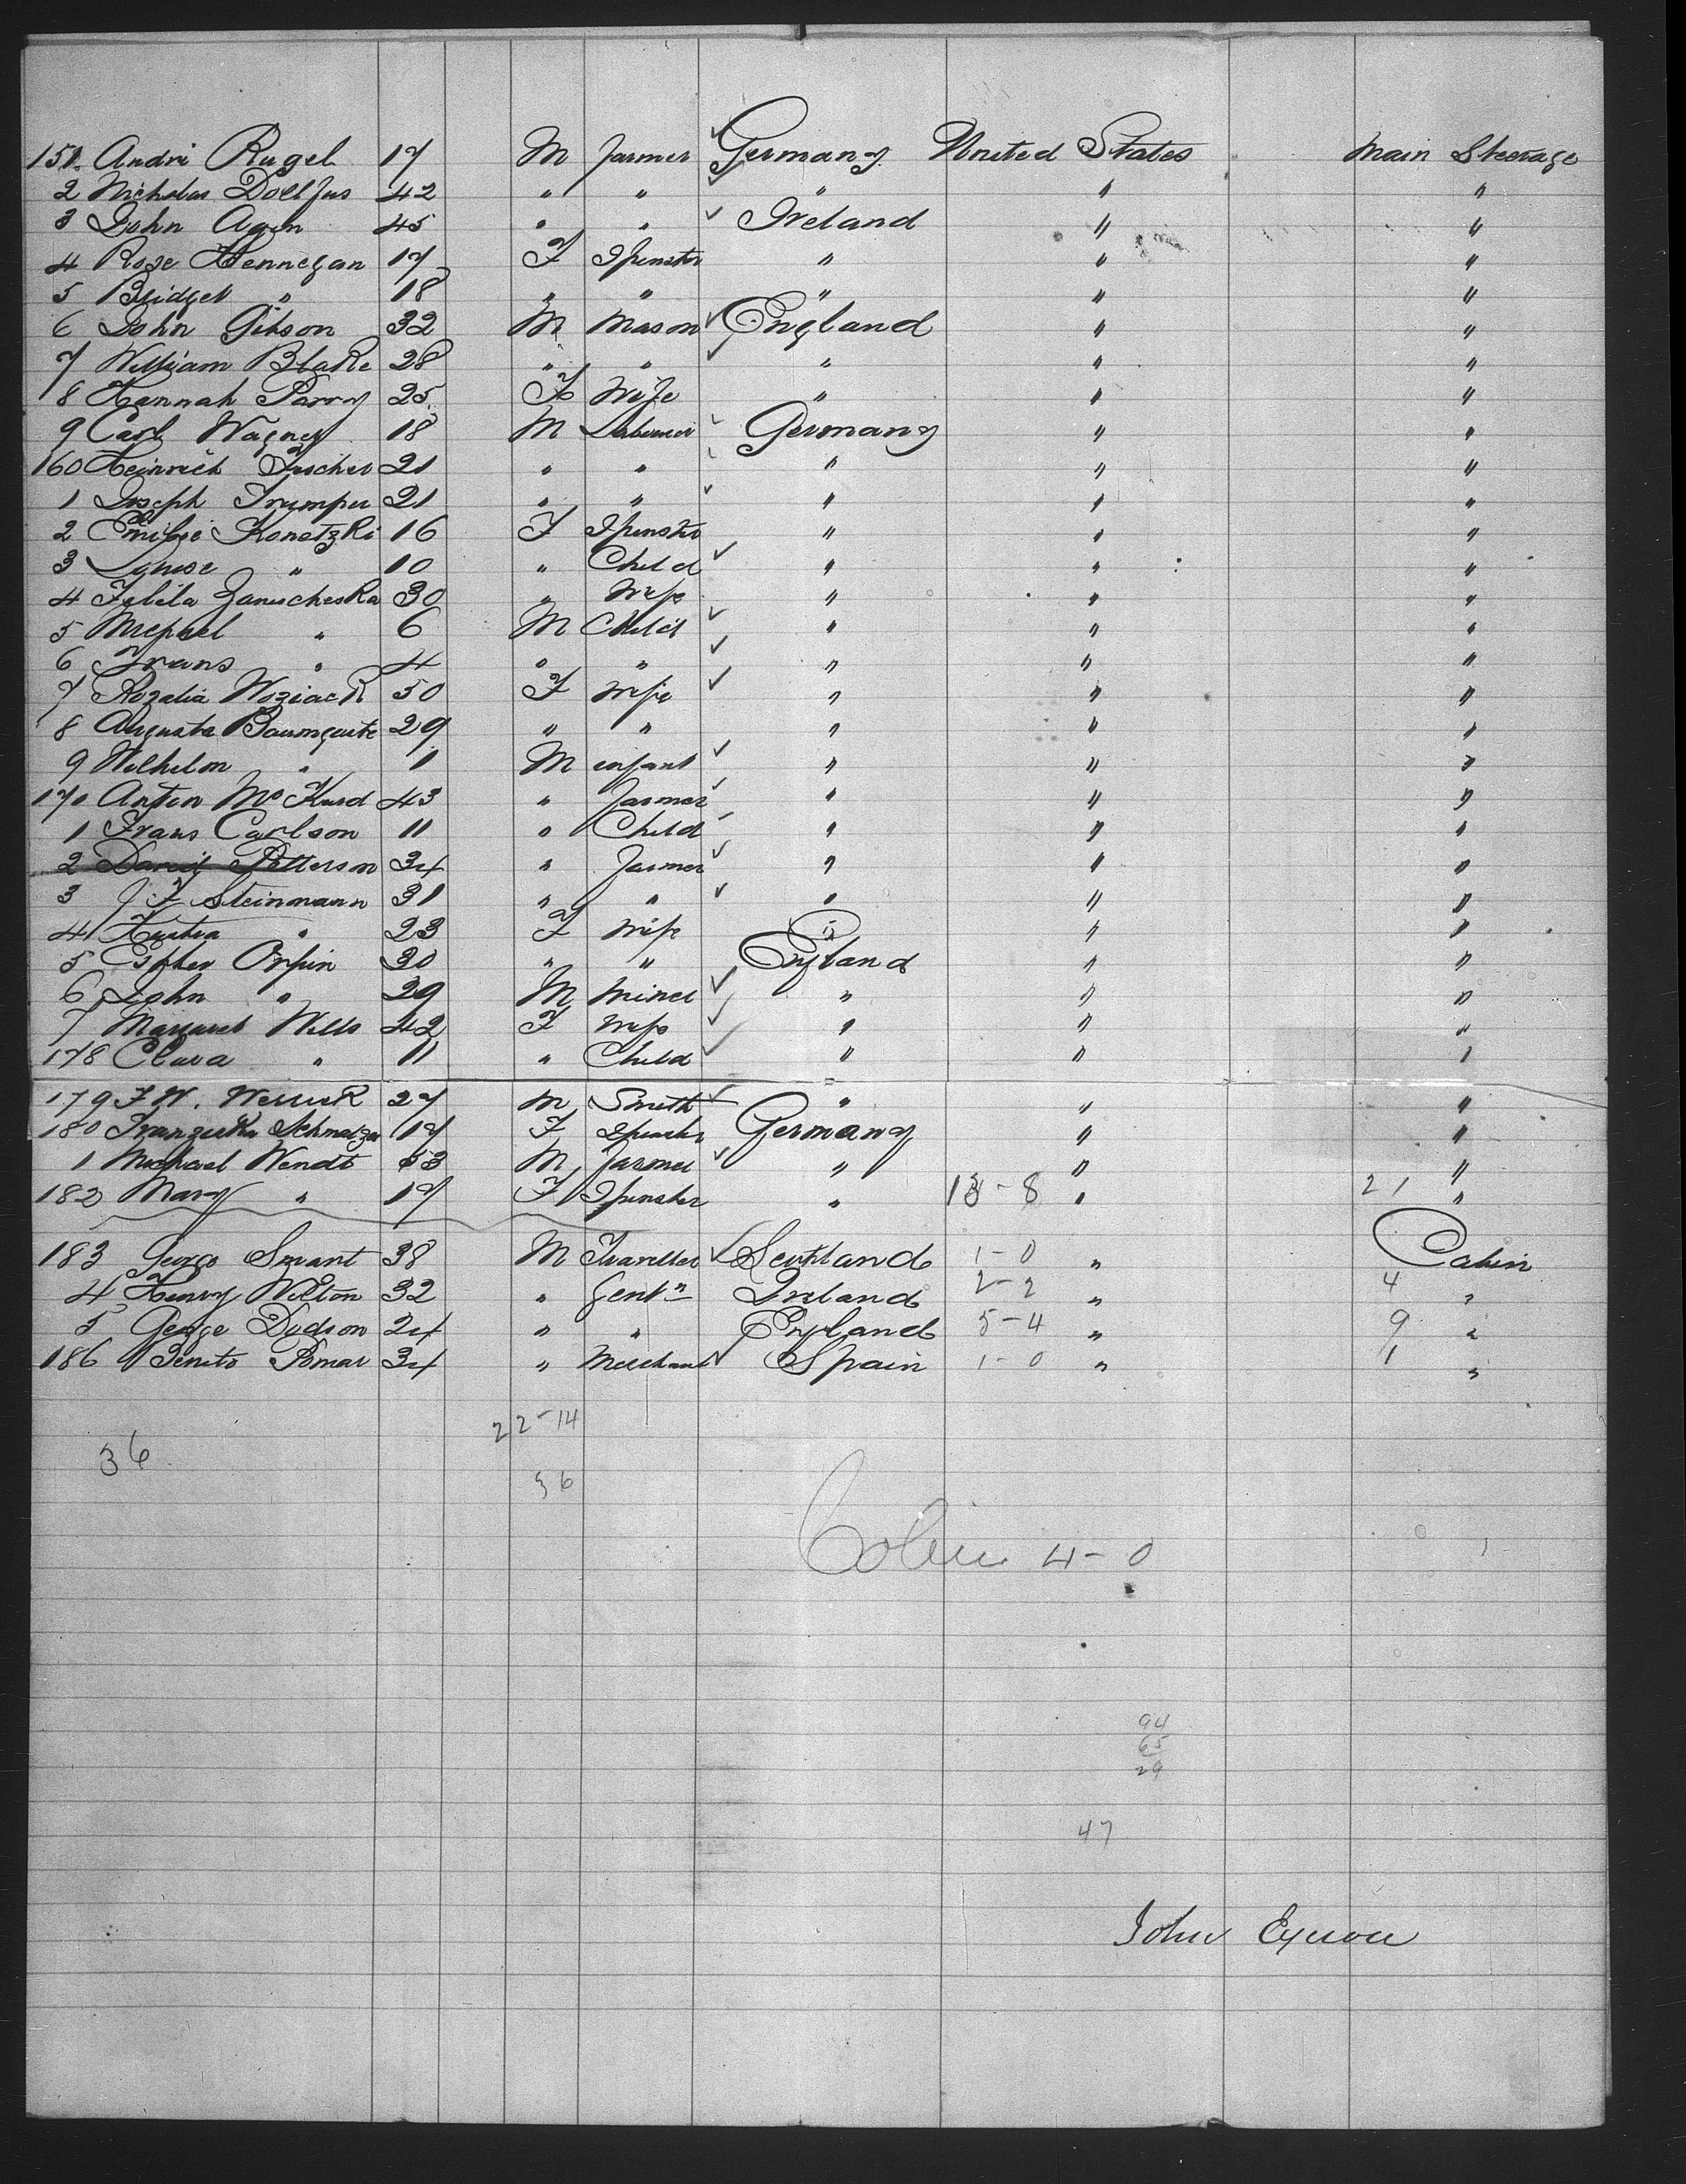 151 Andri Rugel 17 M Farmer Germany United States Main Steerage
2 Nicholas Dollfus 42 " " " " "
3 John Agin 45 " " Ireland " "
4 Rose Hennegan 17 F Spinster " " "
5 Bridget " 18 " " " " "
6 John Gibson 32 M Mason England " "
7 William Blake 28 " " " " "
8 Hannah Parry 25 F Wife " " "
9 Carl Wagner 18 M Labourer Germany " "
160 Heinrich Fischer 21 " " " " "
1 Joseph Trumper 21 " " " " "
2 Emilie Konetzki 16 F Spinster " " "
3 Louise " 10 " Child " " "
4 Julila Zanischeska 30 " Wife " " "
5 Michael " 6 M Child " " "
6 Frans " 4 " " " " "
7 Rozalia Woziack 50 F Wife " " "
8 Augusta Baumgarte 29 " " " " "
9 Wilhelm " 1 M infant " " "
170 Anton 43 " Farmer " " "
1 Frans Carlson 11 " Child " " "
2 David Petterson 34 " Farmer " " "
3 J F Steinmann 31 " " " " "
4 " 23 F Wife " " "
5 Esther Orpin 30 " " England " "
6 John " 29 M Miner " " "
7 Margaret Wills 42 F Wife " " "
178 Clara " 11 " Child " " "
179 F. W. 27 M Smith " " "
180 Franziska 17 F Spinster Germany " "
1 Michael Wendt 53 M Farmer " " "
182 Mary " 17 F Spinster " 13-8 " 21 "
183 George Smart 38 M Traveller Scotland 1-0 " Cabin
4 Henry Wilton 32 " Gentn Ireland 2-2 " 4 "
5 George Dodson 24 " " England 5-4 " 9 "
186 Benito Pomar 34 " Merchant Spain 1-0 " 1 "
22-14
36
36
Cabin 4-0
94
65
29
47
John